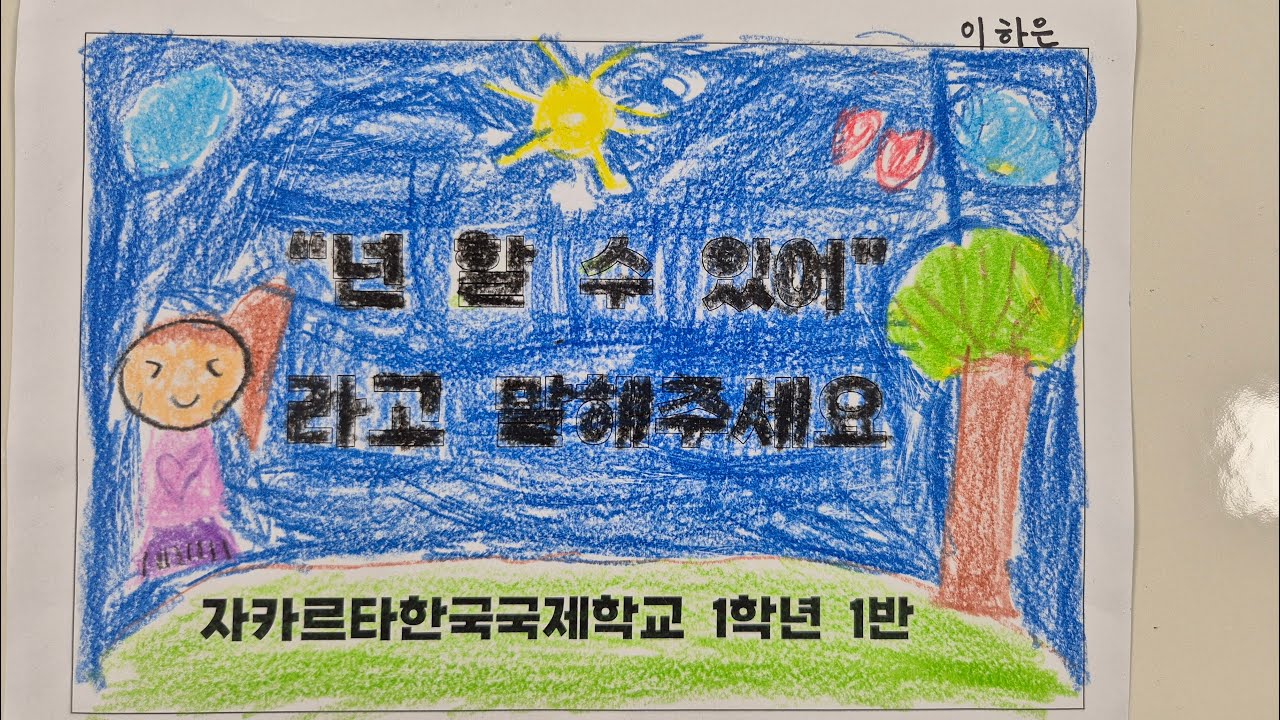 이하은
"넌 할 수 있어"
라고 말해주세요
자카르타한국국제학교 1학년 1반